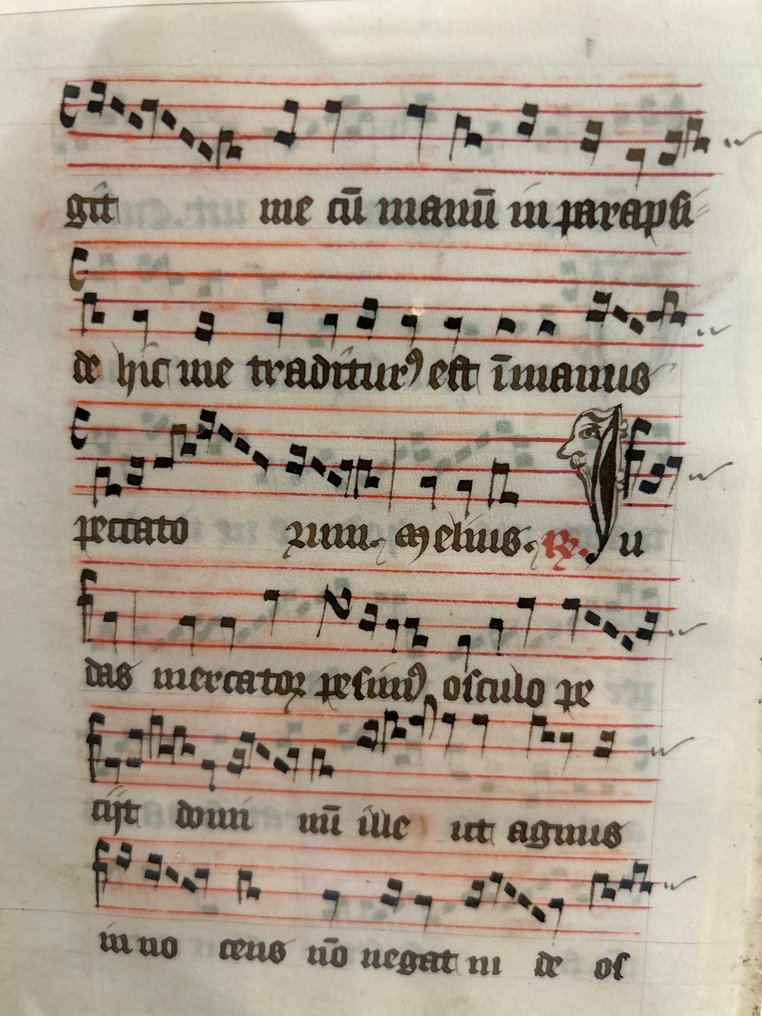 git me cū manū in parapsi
de hic me traditurꝰ est ī manus
peccato rum. Melius. ℟. Iu
das mercator pesimꝰ osculo pe
cijt domi nū ille ut agnus
in no cens nō negat iu de os